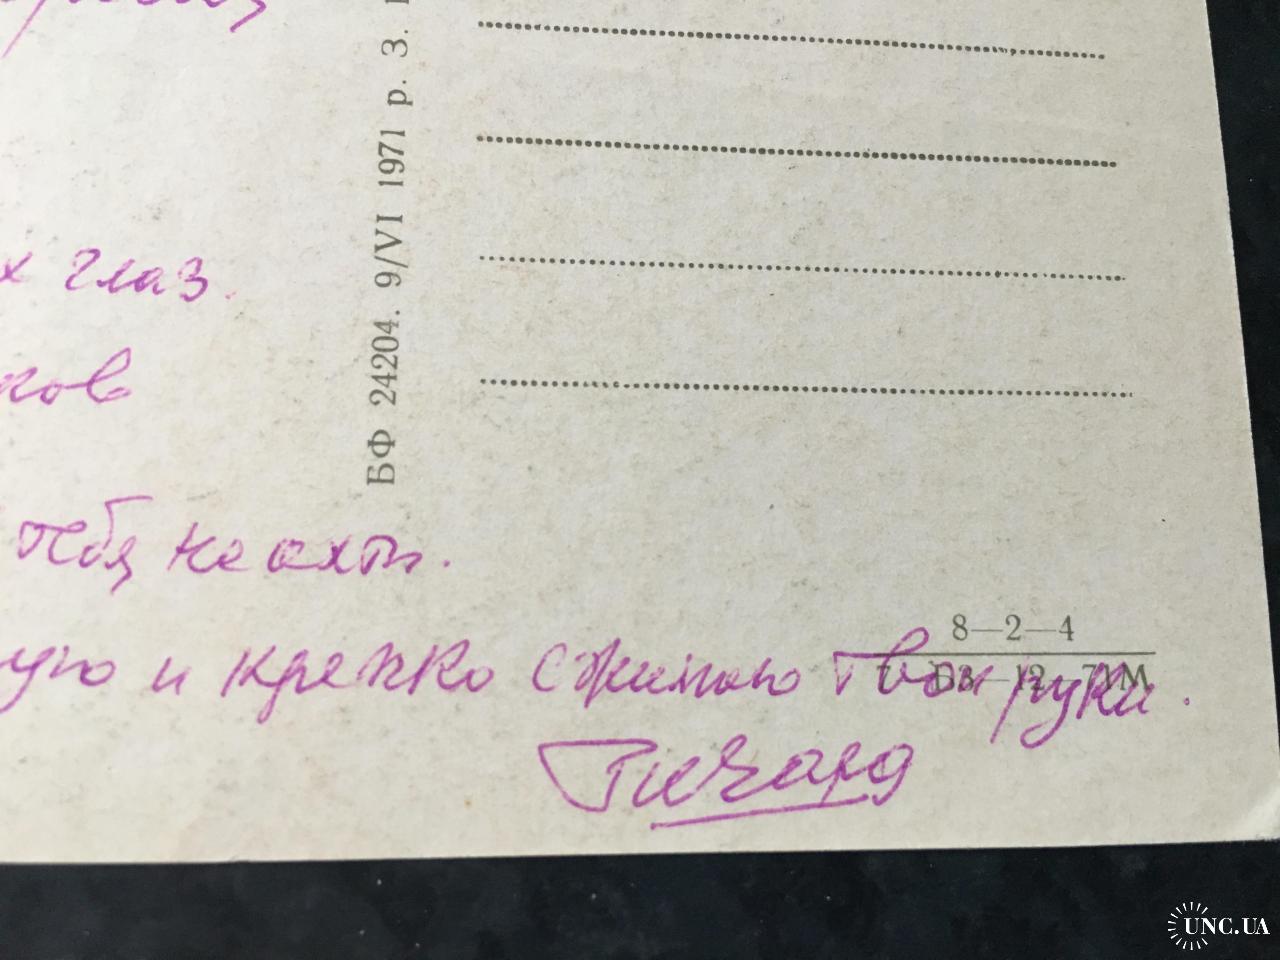 х глаз.
ков
тебя не ахти.
ую и крепко сжимаю твои руки.
Ричард
БФ 24204. 9/VI 1971 р. З.
8—2—4
UNC.UA